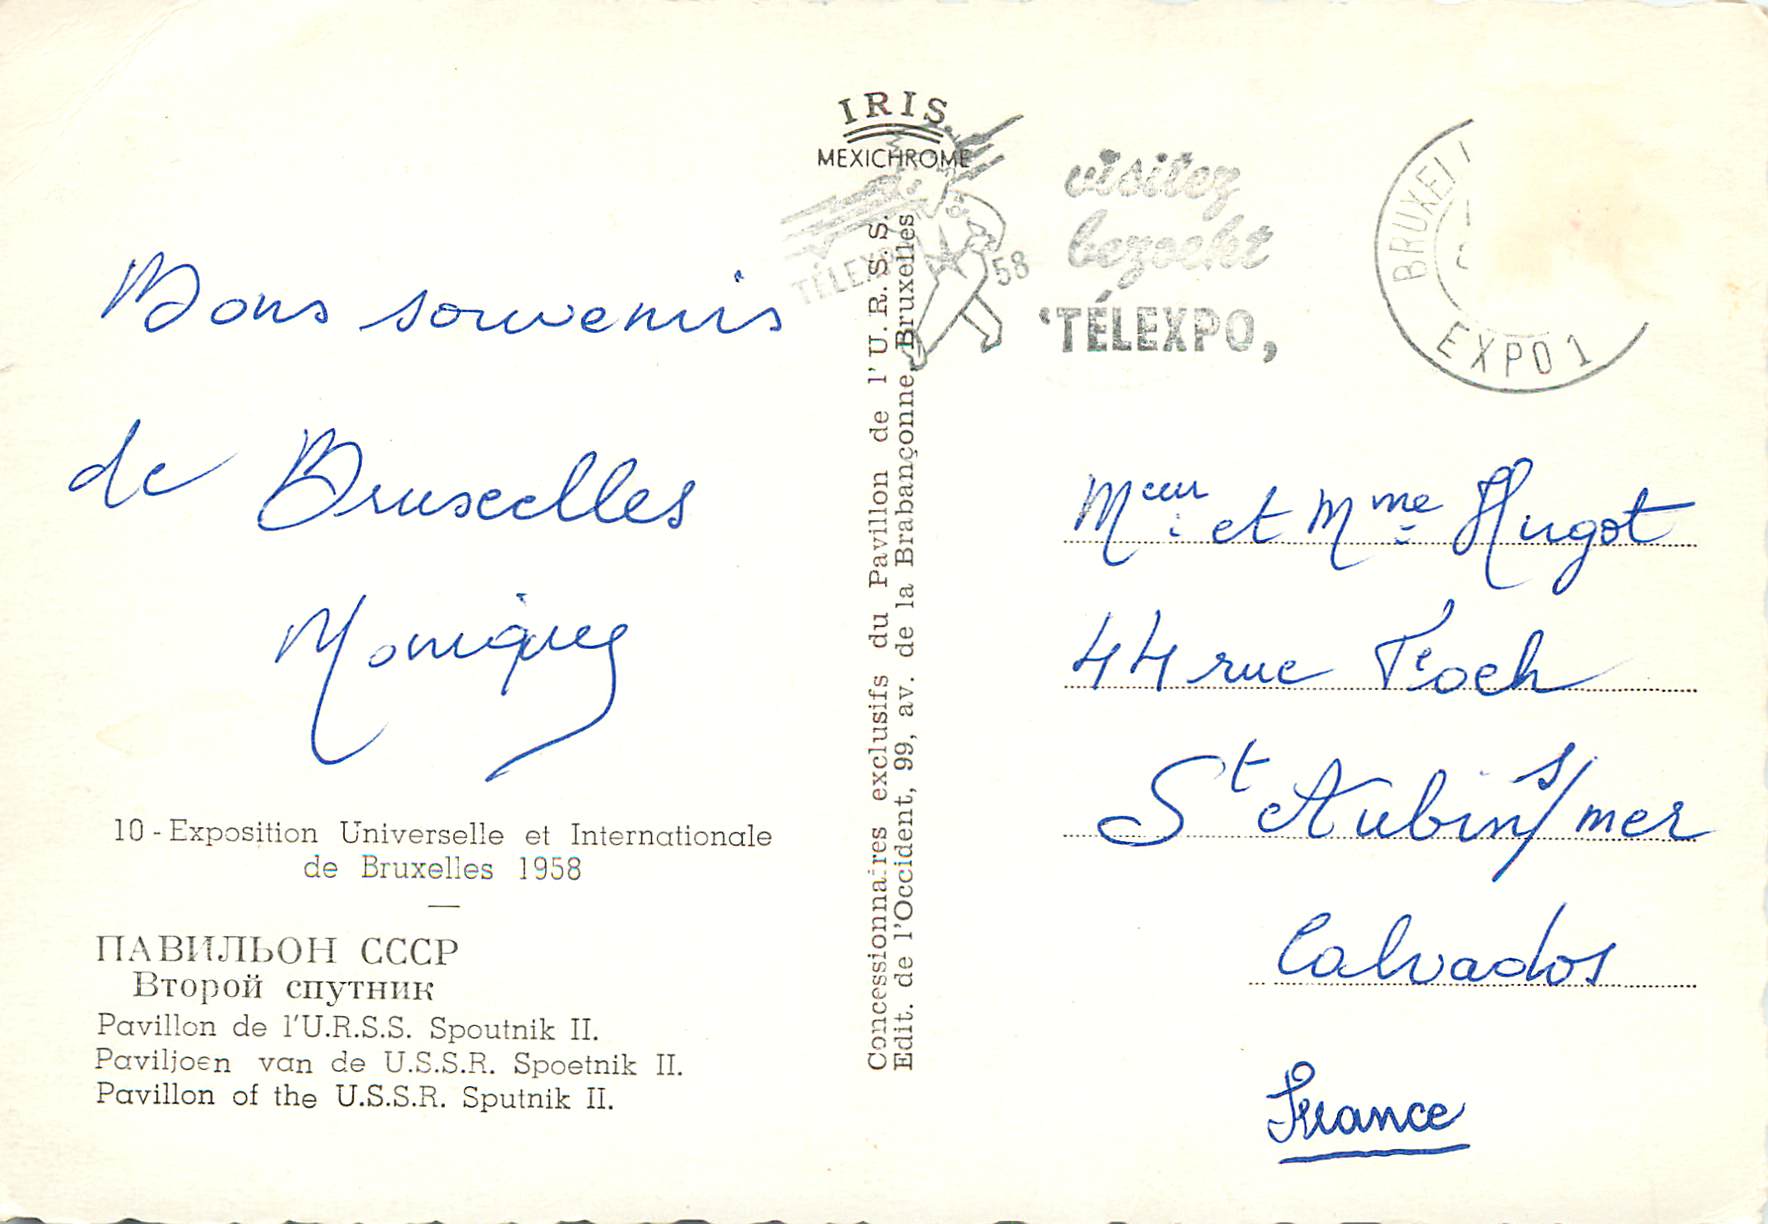 IRIS
MEXICHROME
visitez
bezoekt
'TÉLEXPO,
58
EXPO 1
Bons souvenirs
de Bruxelles
Monique
10 - Exposition Universelle et Internationale
de Bruxelles 1958
ПАВИЛЬОН СССР
Второй спутник
Pavillon de l'U.R.S.S. Spoutnik II.
Paviljoen van de U.S.S.R. Spoetnik II.
Pavillon of the U.S.S.R. Sputnik II.
Concessionnaires exclusifs du Pavillon de l'U.R.S.S.
Edit. de l'Occident, 99, av. de la Brabançonne, Bruxelles
Meur et Mme Hugot
44 rue Foch
St Aubin s/mer
Calvados
France